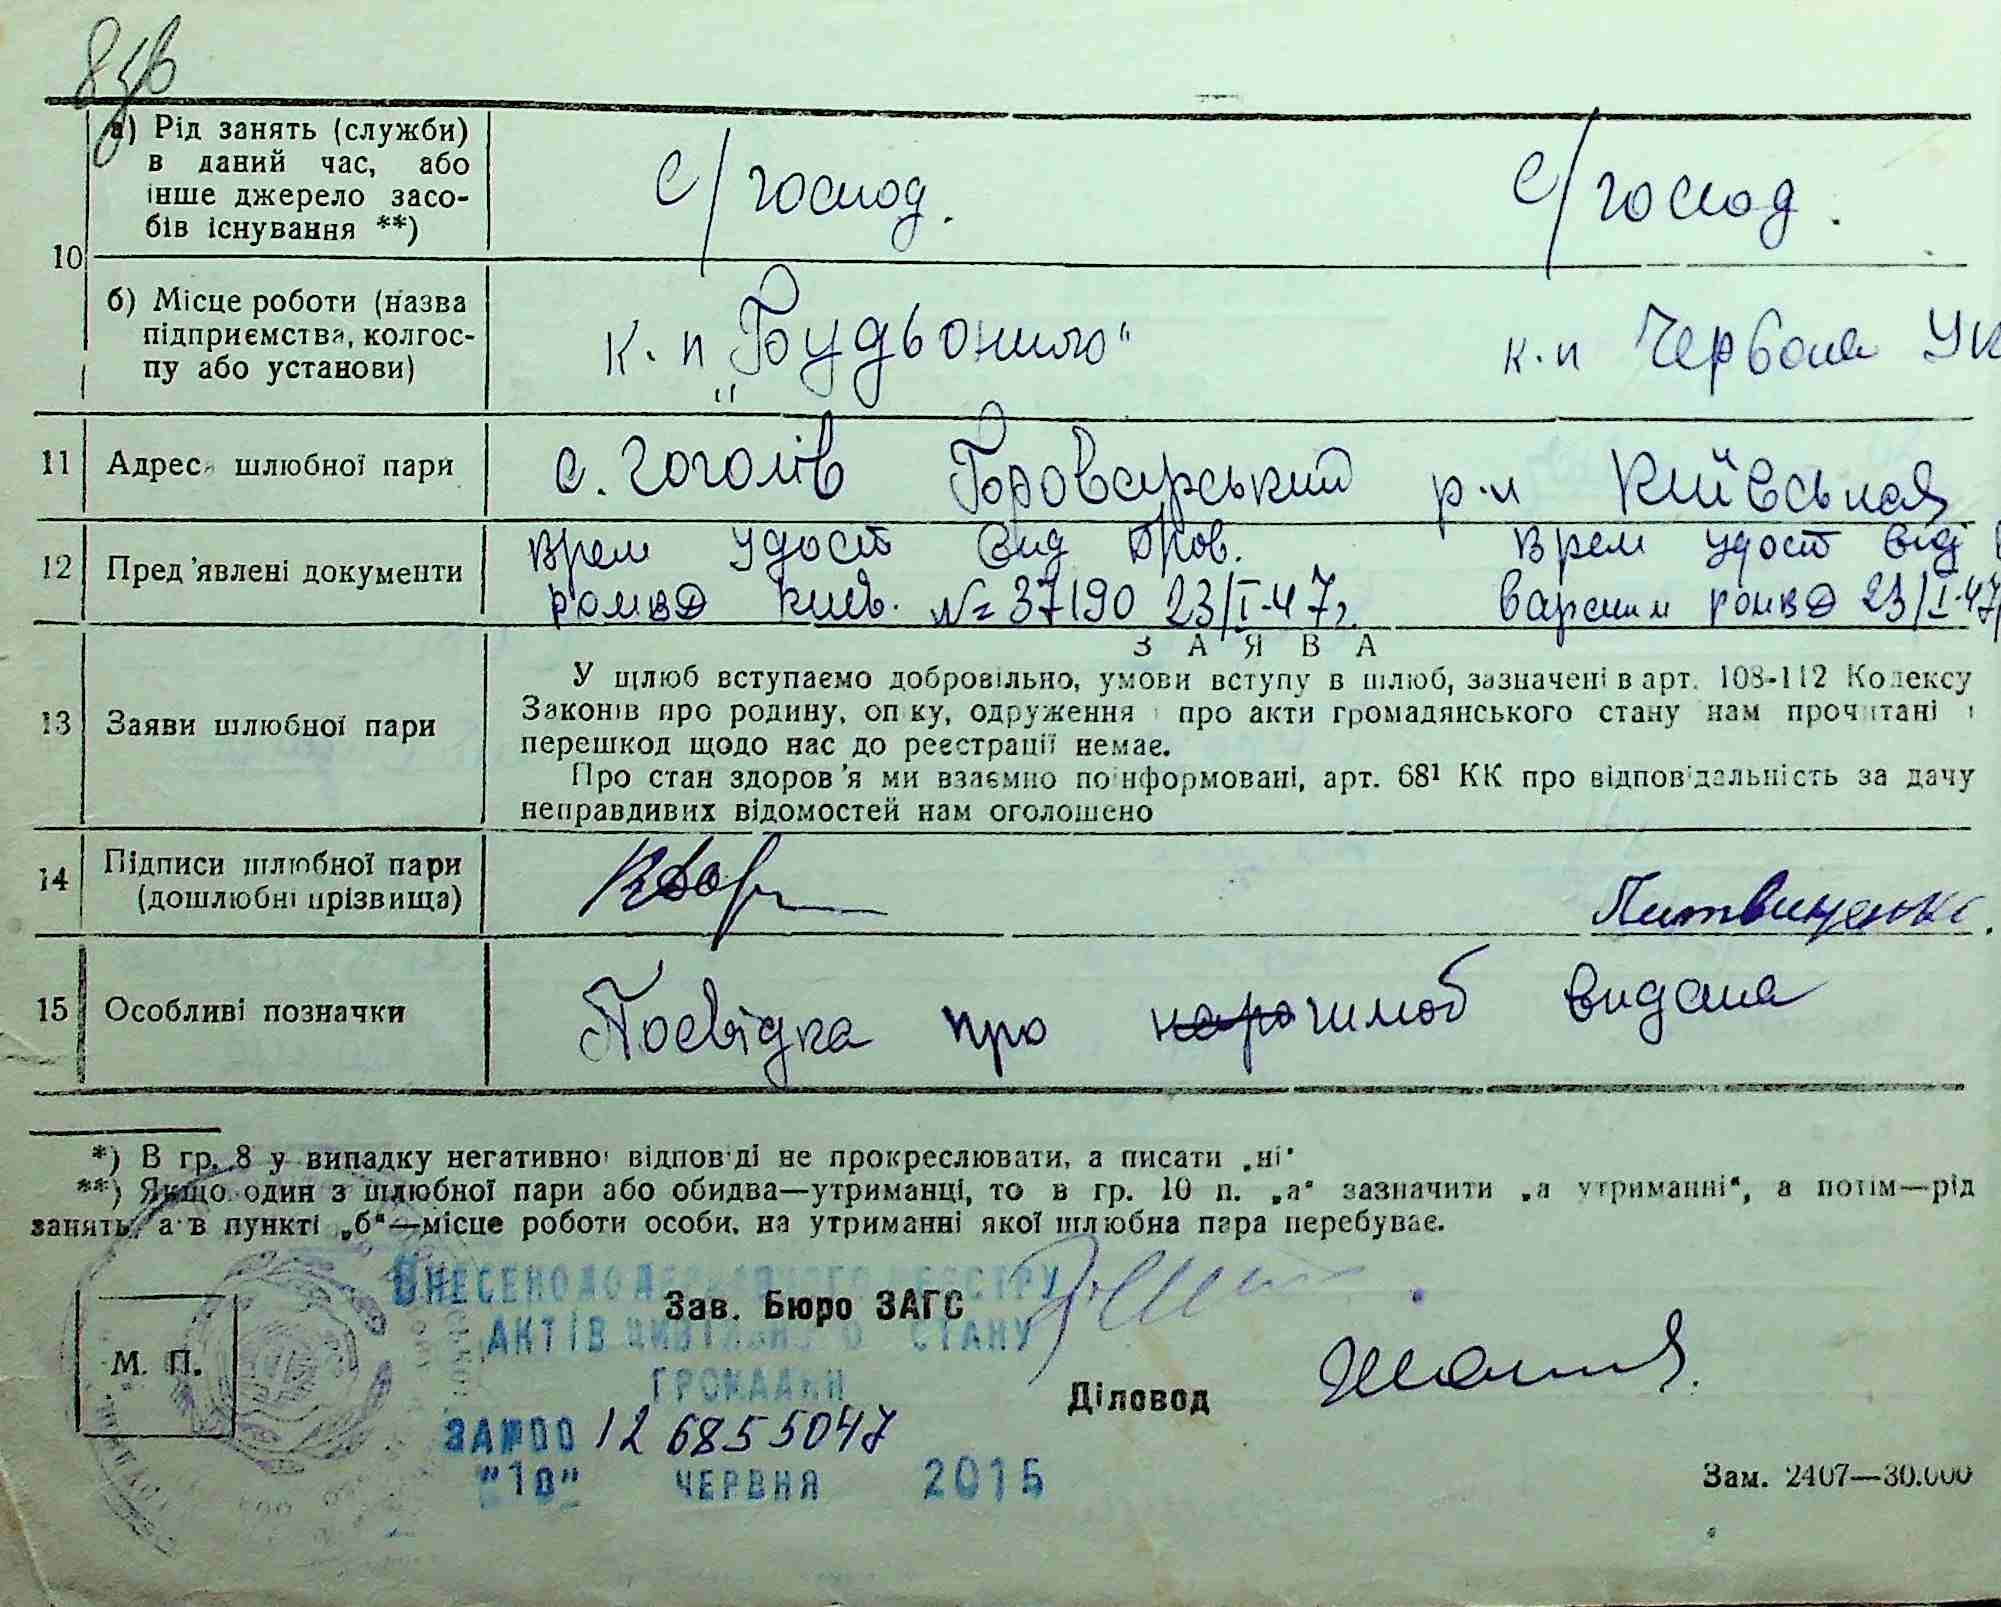 а) Рід занять (служби)
в даний час, або
інше джерело засо-
бів існування **)
с/господ.
с/господ.
10
б) Місце роботи (назва
підприємства, колгос-
пу або установи)
к. п „Будьонного“
к.п Червона Ук
11 Адреса шлюбної пари
с. Гоголів Броварський р-н Київська
12 Пред'явлені документи
Врем удост Вид Бров.
РОМВД Київ. № 37190 23/I-47г.
Врем удост Від
РОМВД 23/I-47
ЗАЯВА
13 Заяви шлюбної пари
У шлюб вступаємо добровільно, умови вступу в шлюб, зазначені в арт. 108-112 Кодексу
Законів про родину, опіку, одруження і про акти громадянського стану нам прочитані і
перешкод щодо нас до реєстрації немає.
Про стан здоров'я ми взаємно поінформовані, арт. 68¹ КК про відповідальність за дачу
неправдивих відомостей нам оголошено
14 Підписи шлюбної пари
(дошлюбні прізвища)
Литвиненко.
15 Особливі позначки
Посвідка про шлюб видана
*) В гр. 8 у випадку негативної відповіді не прокреслювати, а писати „ні“
**) Якщо один з шлюбної пари або обидва—утриманці, то в гр. 10 п. „а“ зазначити „а утриманні“, а потім—рід
занять, а в пункті „б“—місце роботи особи, на утриманні якої шлюбна пара перебуває.
ВНЕСЕНО ДО ДЕРЖАВНОГО РЕЄСТРУ
Зав. Бюро ЗАГС
АКТІВ ЦИВІЛЬНОГО СТАНУ
М. П.
ГРОМАДЯН
Діловод
ЗА №00 126855047
"10" ЧЕРВНЯ 2015
Зам. 2407—30.000